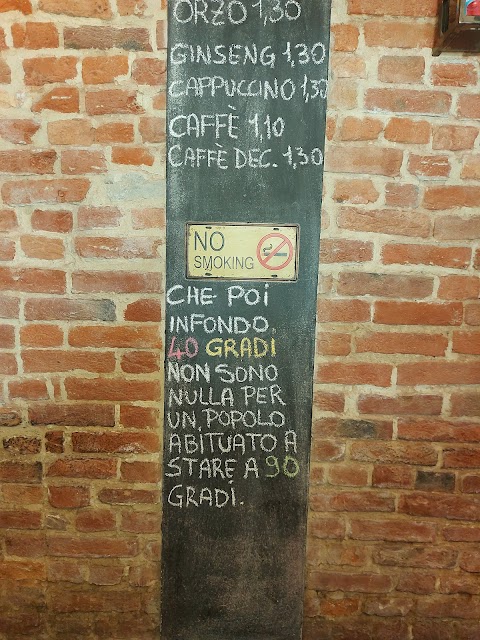 ORZO 1,30
GINSENG 1,30
CAPPUCCINO 1,30
CAFFÈ 1,10
CAFFÈ DEC. 1,30
NO
SMOKING
CHE POI
INFONDO,
40 GRADI
NON SONO
NULLA PER
UN, POPOLO
ABITUATO A
STARE A 90
GRADI.